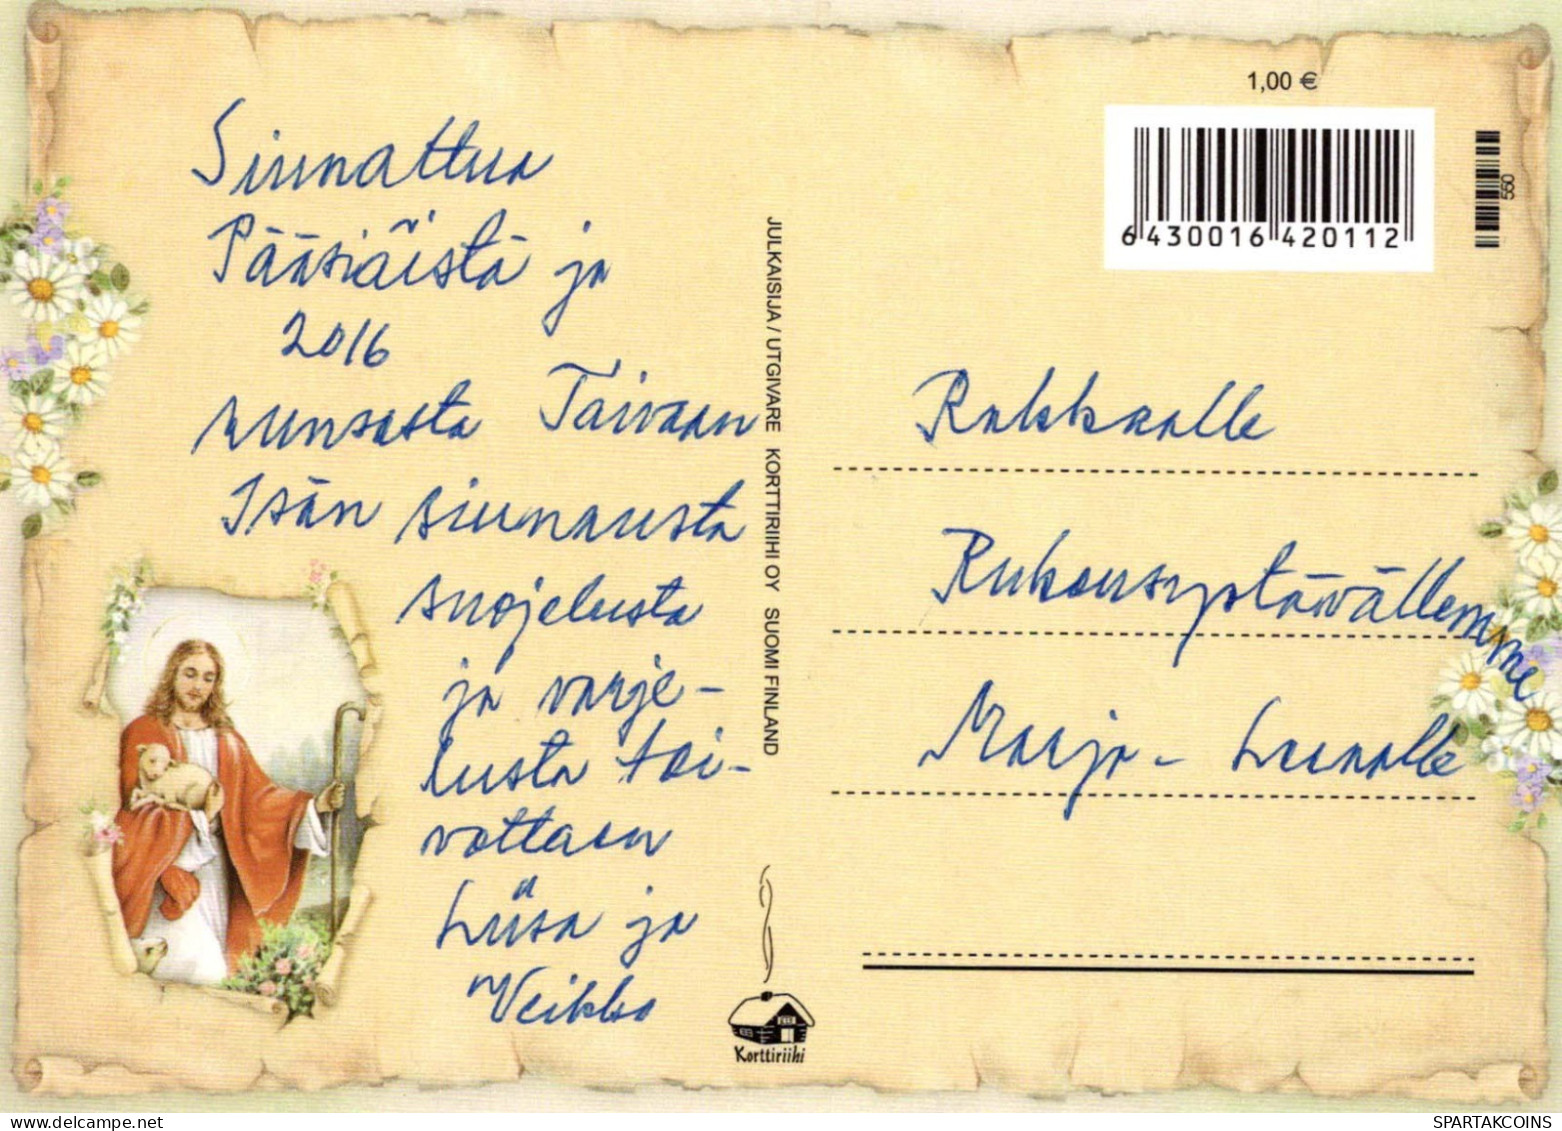 Siunattua
Pääsiäistä ja
2016
runsasta Taivaan
Isän siunausta
suojelusta
ja varje-
lusta toi-
vottaen
Liisa ja
Veikko
JULKAISIJA / UTGIVARE KORTTIRIIHI OY SUOMI FINLAND
Korttiriihi
1,00 €
6 430016 420112
550
Rakkaalle
Rukousystävällemme
Marja-Leenalle
SPARTAKCOINS